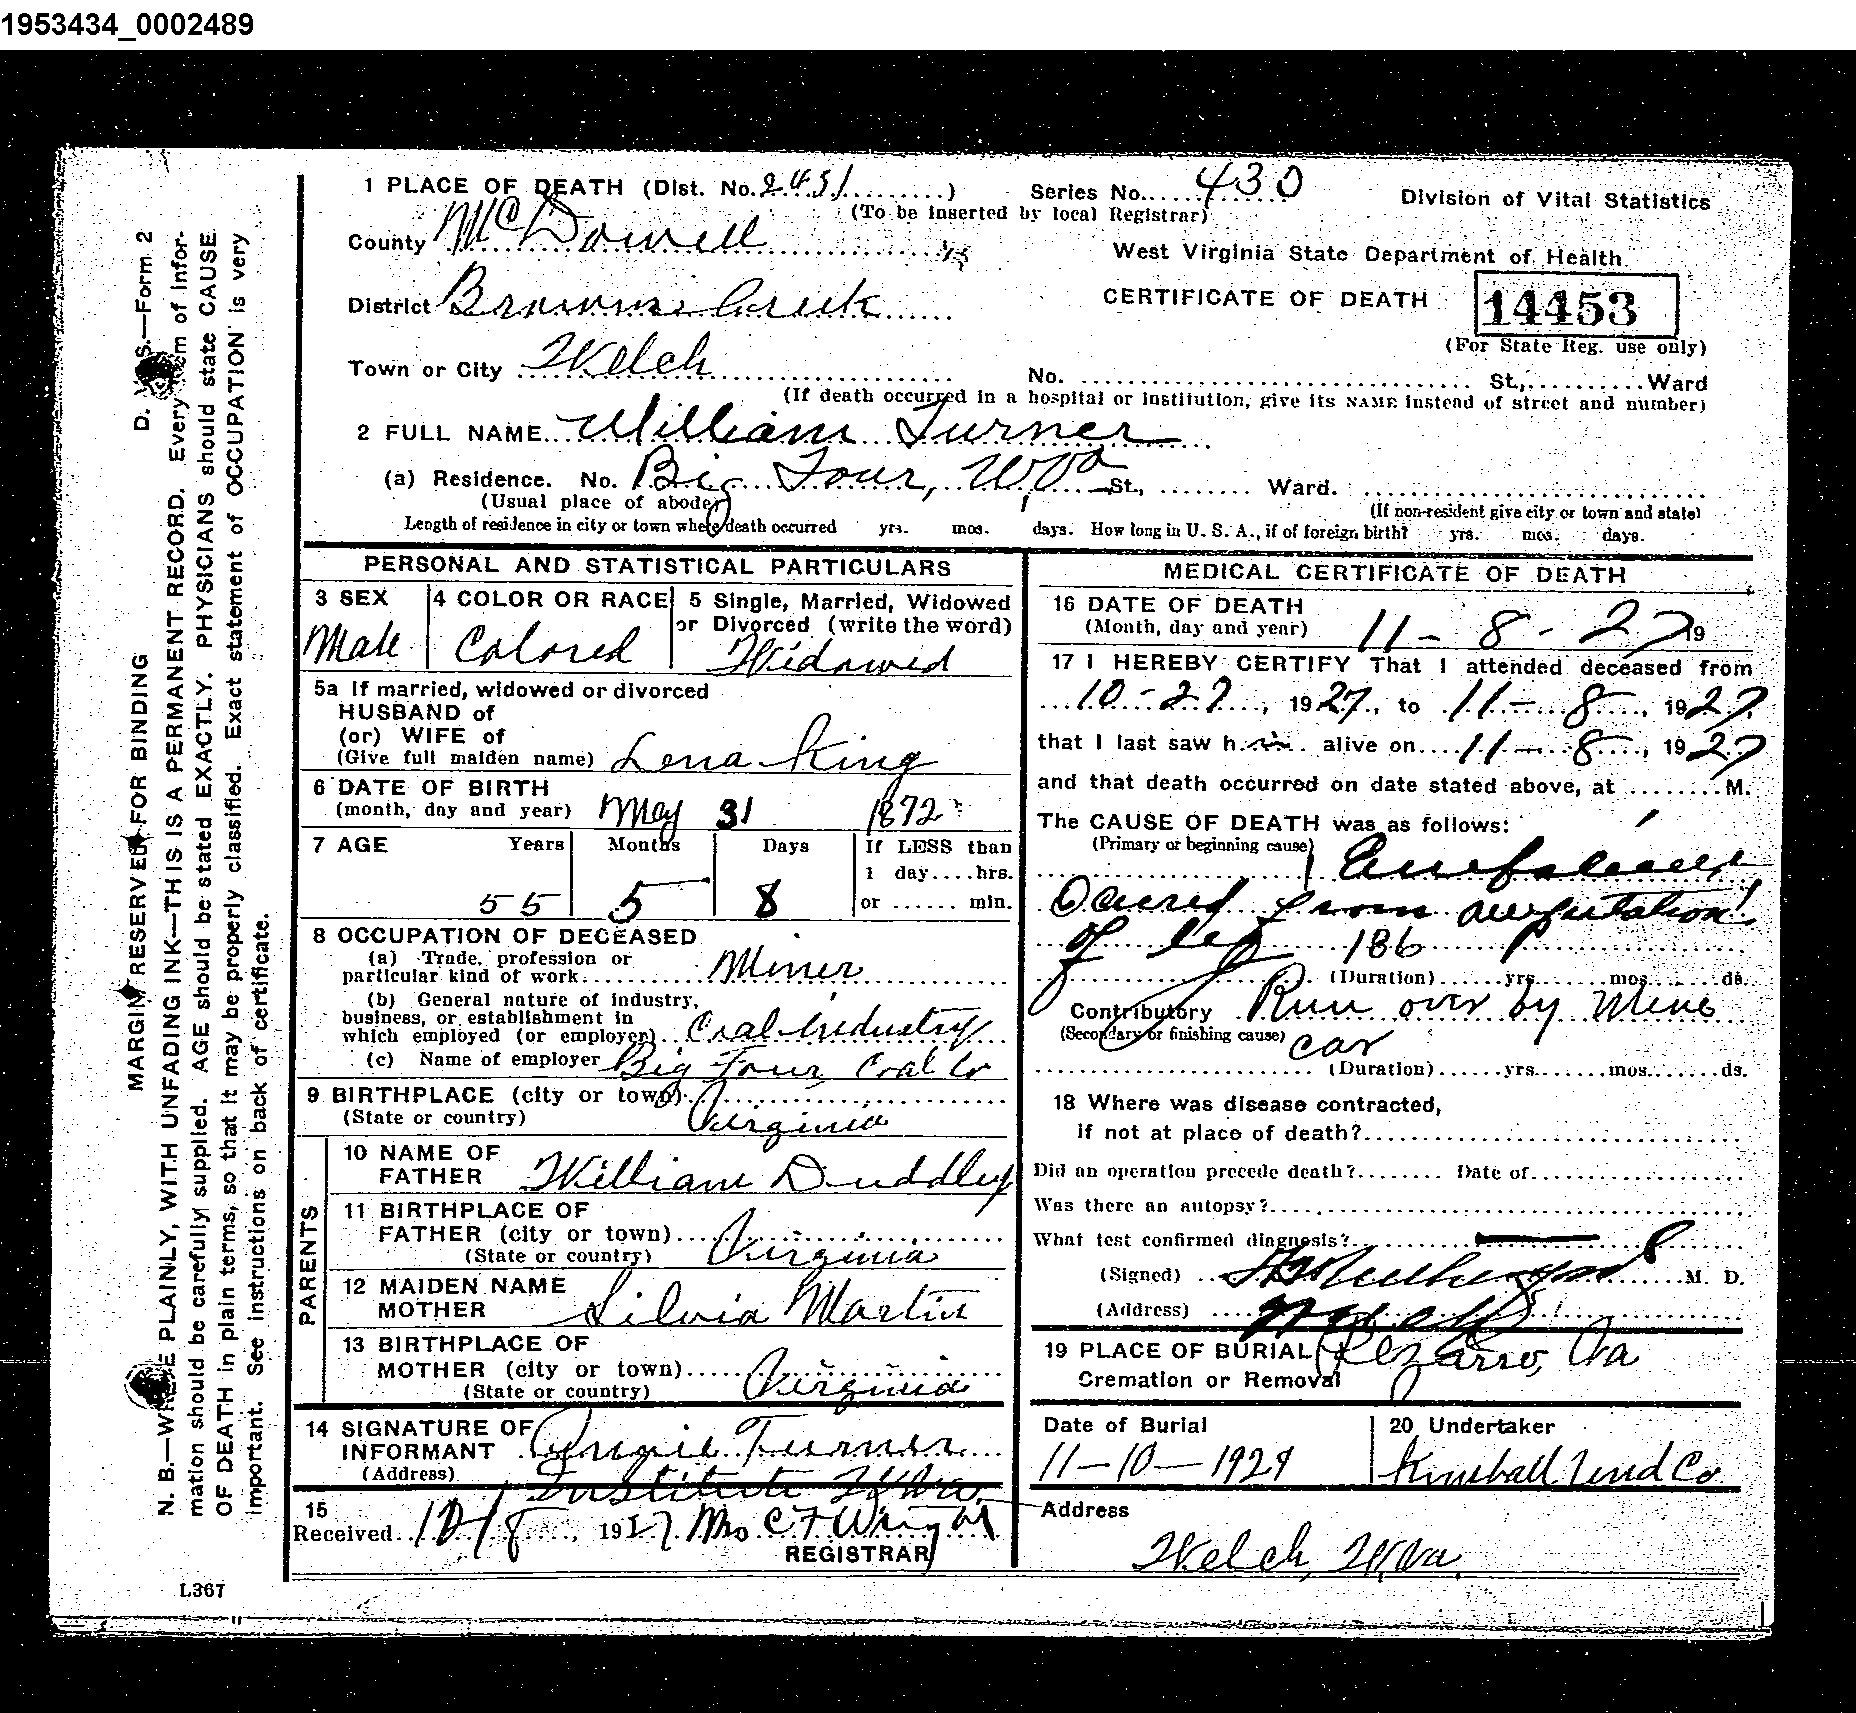 1953434_0002489
1 PLACE OF DEATH (Dist. No. 2451) Series No. 430 Division of Vital Statistics
(To be inserted by local Registrar)
County McDowell
West Virginia State Department of Health
District Browns Creek
CERTIFICATE OF DEATH 14453
(For State Reg. use only)
Town or City Welch No. St., Ward
(If death occurred in a hospital or institution, give its NAME instead of street and number)
2 FULL NAME William Turner
(a) Residence. No. Big Four, W.Va St., Ward.
(Usual place of abode) (If non-resident give city or town and state)
Length of residence in city or town where death occurred yrs. mos. days. How long in U. S. A., if of foreign birth? yrs. mos. days.
PERSONAL AND STATISTICAL PARTICULARS
3 SEX Male
4 COLOR OR RACE Colored
5 Single, Married, Widowed
or Divorced (write the word)
Widowed
5a If married, widowed or divorced
HUSBAND of
(or) WIFE of
(Give full maiden name) Lena King
6 DATE OF BIRTH
(month, day and year) May 31 1872
7 AGE Years Months Days If LESS than
1 day....hrs.
55 5 8 or ...... min.
8 OCCUPATION OF DECEASED
(a) Trade, profession or
particular kind of work Miner
(b) General nature of industry,
business, or establishment in
which employed (or employer) Coal Industry
(c) Name of employer Big Four Coal Co
9 BIRTHPLACE (city or town)
(State or country) Virginia
PARENTS
10 NAME OF
FATHER William Duddley
11 BIRTHPLACE OF
FATHER (city or town)
(State or country) Virginia
12 MAIDEN NAME
MOTHER Silvia Martin
13 BIRTHPLACE OF
MOTHER (city or town)
(State or country) Virginia
14 SIGNATURE OF
INFORMANT Turner
(Address) Institute W.Va.
15
Received 12/8, 1927 Mrs C F Wright
REGISTRAR
MEDICAL CERTIFICATE OF DEATH
16 DATE OF DEATH
(Month, day and year) 11-8-27 19
17 I HEREBY CERTIFY That I attended deceased from
10-27, 1927, to 11-8, 1927
that I last saw him alive on 11-8, 1927
and that death occurred on date stated above, at ........M.
The CAUSE OF DEATH was as follows:
(Primary or beginning cause)
from amputation
of leg 186
(Duration) yrs. mos. ds.
Contributory Run over by Mine
(Secondary or finishing cause) car
(Duration) yrs. mos. ds.
18 Where was disease contracted,
if not at place of death?
Did an operation precede death? Date of
Was there an autopsy?
What test confirmed diagnosis?
(Signed) M. D.
(Address) Welch
19 PLACE OF BURIAL Pizarro, Va
Cremation or Removal
Date of Burial
11-10-1927
20 Undertaker
Kimball Und Co
Address
Welch, W.Va.
MARGIN RESERVED FOR BINDING D. V. S.—Form 2
N. B.—WRITE PLAINLY, WITH UNFADING INK—THIS IS A PERMANENT RECORD. Every item of infor-
mation should be carefully supplied. AGE should be stated EXACTLY. PHYSICIANS should state CAUSE
OF DEATH in plain terms, so that it may be properly classified. Exact statement of OCCUPATION is very
important. See instructions on back of certificate.
L367